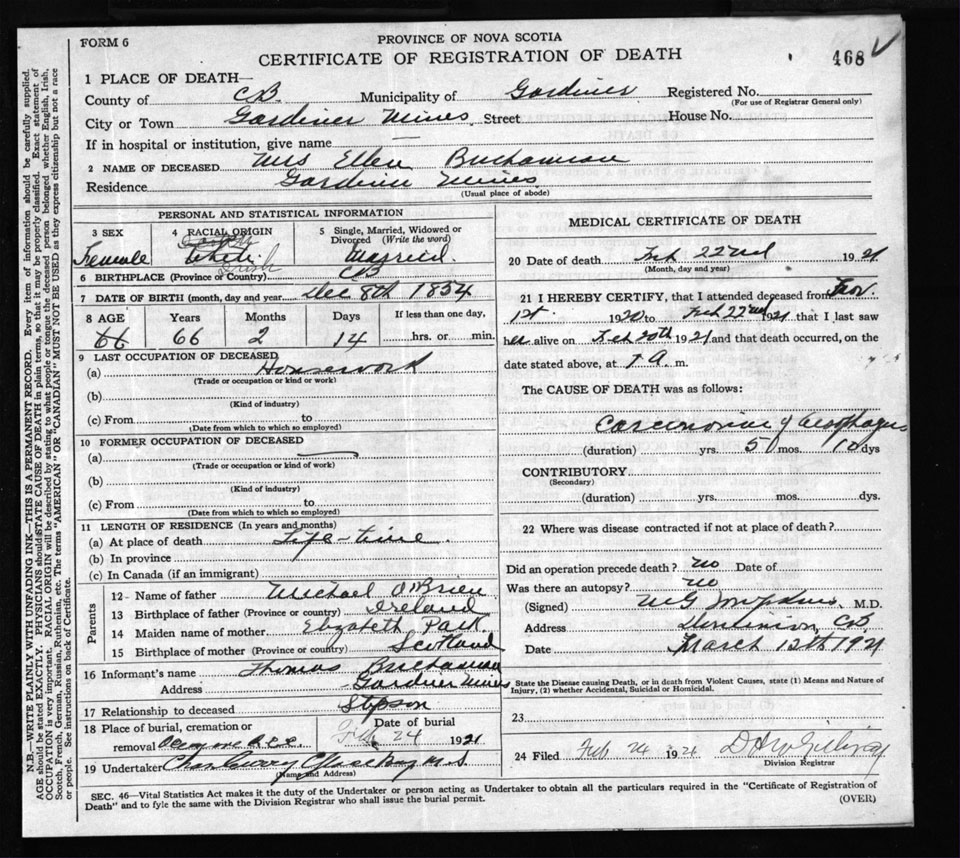 FORM 6
PROVINCE OF NOVA SCOTIA
CERTIFICATE OF REGISTRATION OF DEATH
468
1 PLACE OF DEATH—
County of CB. Municipality of Gardiner Registered No.
(For use of Registrar General only)
City or Town Gardiner Mines Street House No.
If in hospital or institution, give name
2 NAME OF DECEASED Mrs Ellen Buchannan
Residence Gardiner Mines
(Usual place of abode)
PERSONAL AND STATISTICAL INFORMATION
3 SEX
Female
4 RACIAL ORIGIN
White
Irish
5 Single, Married, Widowed or Divorced (Write the word)
Married.
6 BIRTHPLACE (Province or Country) CB
7 DATE OF BIRTH (month, day and year) Dec 8th 1854
8 AGE Years Months Days If less than one day,
66 66 2 14 hrs. or min.
9 LAST OCCUPATION OF DECEASED
(a) Housework
(Trade or occupation or kind or work)
(b)
(Kind of industry)
(c) From to
(Date from which to which so employed)
10 FORMER OCCUPATION OF DECEASED
(a)
(Trade or occupation or kind of work)
(b)
(Kind of industry)
(c) From to
(Date from which to which so employed)
11 LENGTH OF RESIDENCE (In years and months)
(a) At place of death Life-time
(b) In province
(c) In Canada (if an immigrant)
Parents
12 Name of father Michael O'Brien
13 Birthplace of father (Province or country) Ireland
14 Maiden name of mother Elizabeth Park
15 Birthplace of mother (Province or country) Scotland
16 Informant's name Thomas Buchannan
Address Gardiner Mines
17 Relationship to deceased Stepson
18 Place of burial, cremation or removal
Date of burial
Feb 24 1921
19 Undertaker Glace Bay N.S.
(Name and Address)
MEDICAL CERTIFICATE OF DEATH
20 Date of death Feb 22nd 1921
(Month, day and year)
21 I HEREBY CERTIFY, that I attended deceased from Nov.
1st 1920 to Feb 22nd 1921 that I last saw
her alive on Feb 20th 1921 and that death occurred, on the
date stated above, at 7 a m.
The CAUSE OF DEATH was as follows:
Carcinoma of Oesophagus
(duration) yrs. 5 mos. 10 dys
CONTRIBUTORY
(Secondary)
(duration) yrs. mos. dys.
22 Where was disease contracted if not at place of death?
Did an operation precede death? no Date of
Was there an autopsy? no
(Signed) M.D.
Address Dominion, CB.
Date March 12th 1921
State the Disease causing Death, or in Death from Violent Causes, state (1) Means and Nature of
Injury, (2) whether Accidental, Suicidal or Homicidal.
23
24 Filed Feb 24 1921
Division Registrar
SEC. 46—Vital Statistics Act makes it the duty of the Undertaker or person acting as Undertaker to obtain all the particulars required in the "Certificate of Registration of
Death" and to fyle the same with the Division Registrar who shall issue the burial permit.
(OVER)
N.B.—WRITE PLAINLY WITH UNFADING INK—THIS IS A PERMANENT RECORD. Every item of information should be carefully supplied.
AGE should be stated EXACTLY. PHYSICIANS should STATE CAUSE OF DEATH in plain terms, so that it may be properly classified. Exact statement of
OCCUPATION is very important. RACIAL ORIGIN will be described by stating to what people or tongue the deceased person belonged whether English, Irish,
Scotch, French, German, Russian, Ruthenian, etc. The terms "AMERICAN" OR "CANADIAN" MUST NOT BE USED as they express citizenship but not a race
or people. See instructions on back of Certificate.